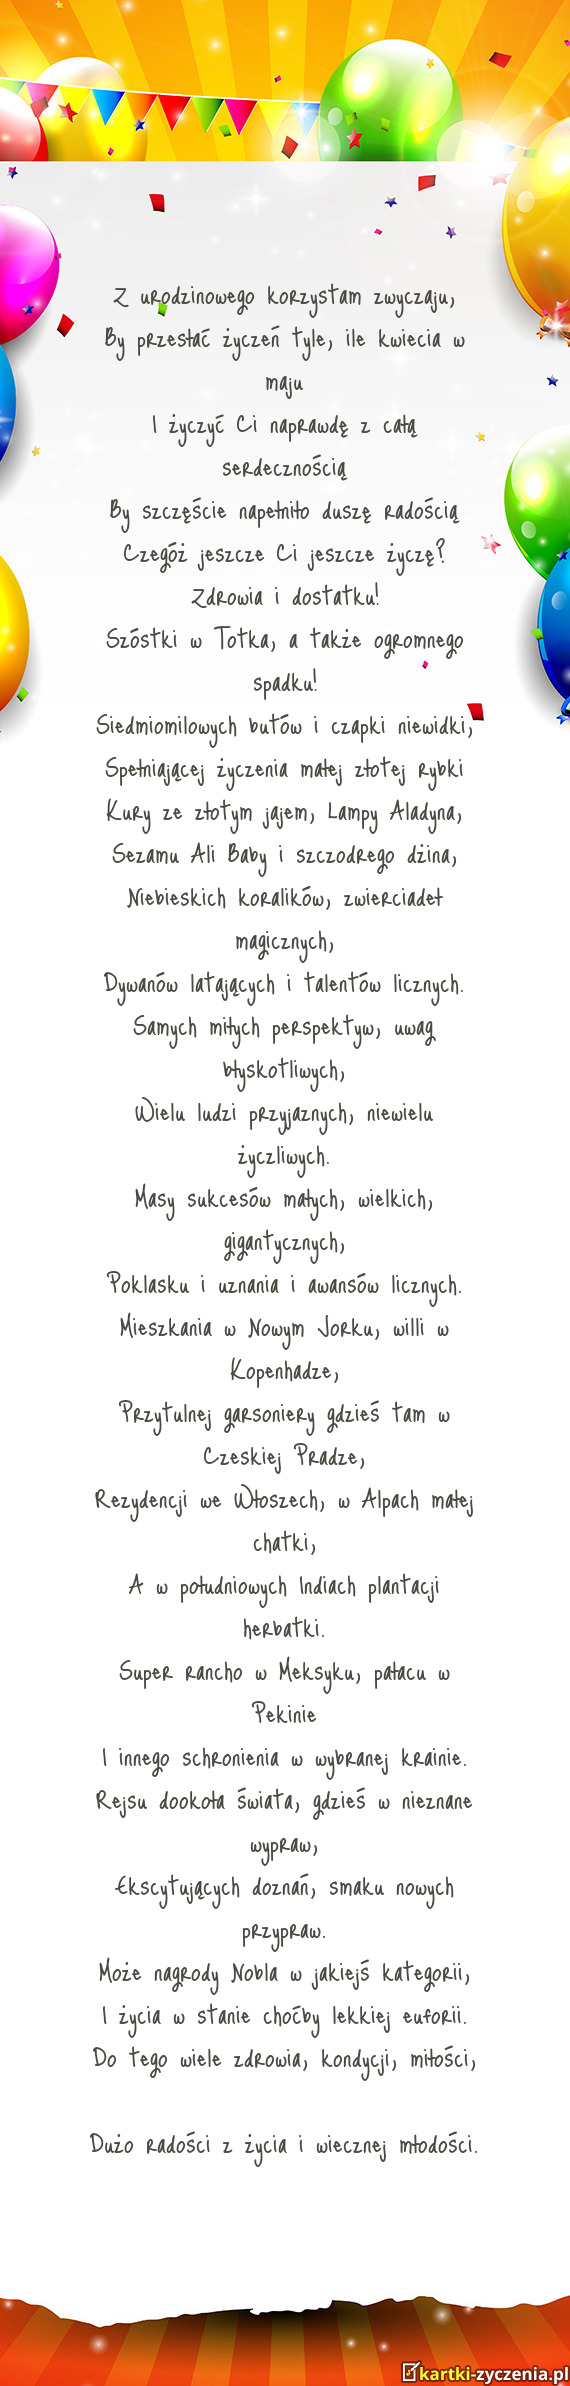 Z urodzinowego korzystam zwyczaju,
By przesłać życzeń tyle, ile kwiecia w
maju
I życzyć Ci naprawdę z całą
serdecznością
By szczęście napełniło duszę radością
Czegóż jeszcze Ci jeszcze życzę?
Zdrowia i dostatku!
Szóstki w Totka, a także ogromnego
spadku!
Siedmiomilowych butów i czapki niewidki,
Spełniającej życzenia małej złotej rybki
Kury ze złotym jajem, Lampy Aladyna,
Sezamu Ali Baby i szczodrego dżina,
Niebieskich koralików, zwierciadeł
magicznych,
Dywanów latających i talentów licznych.
Samych miłych perspektyw, uwag
błyskotliwych,
Wielu ludzi przyjaznych, niewielu
życzliwych.
Masy sukcesów małych, wielkich,
gigantycznych,
Poklasku i uznania i awansów licznych.
Mieszkania w Nowym Jorku, willi w
Kopenhadze,
Przytulnej garsoniery gdzieś tam w
Czeskiej Pradze,
Rezydencji we Włoszech, w Alpach małej
chatki,
A w południowych Indiach plantacji
herbatki.
Super rancho w Meksyku, pałacu w
Pekinie
I innego schronienia w wybranej krainie.
Rejsu dookoła świata, gdzieś w nieznane
wypraw,
Ekscytujących doznań, smaku nowych
przypraw.
Może nagrody Nobla w jakiejś kategorii,
I życia w stanie choćby lekkiej euforii.
Do tego wiele zdrowia, kondycji, miłości,
Dużo radości z życia i wiecznej młodości.
kartki-zyczenia.pl